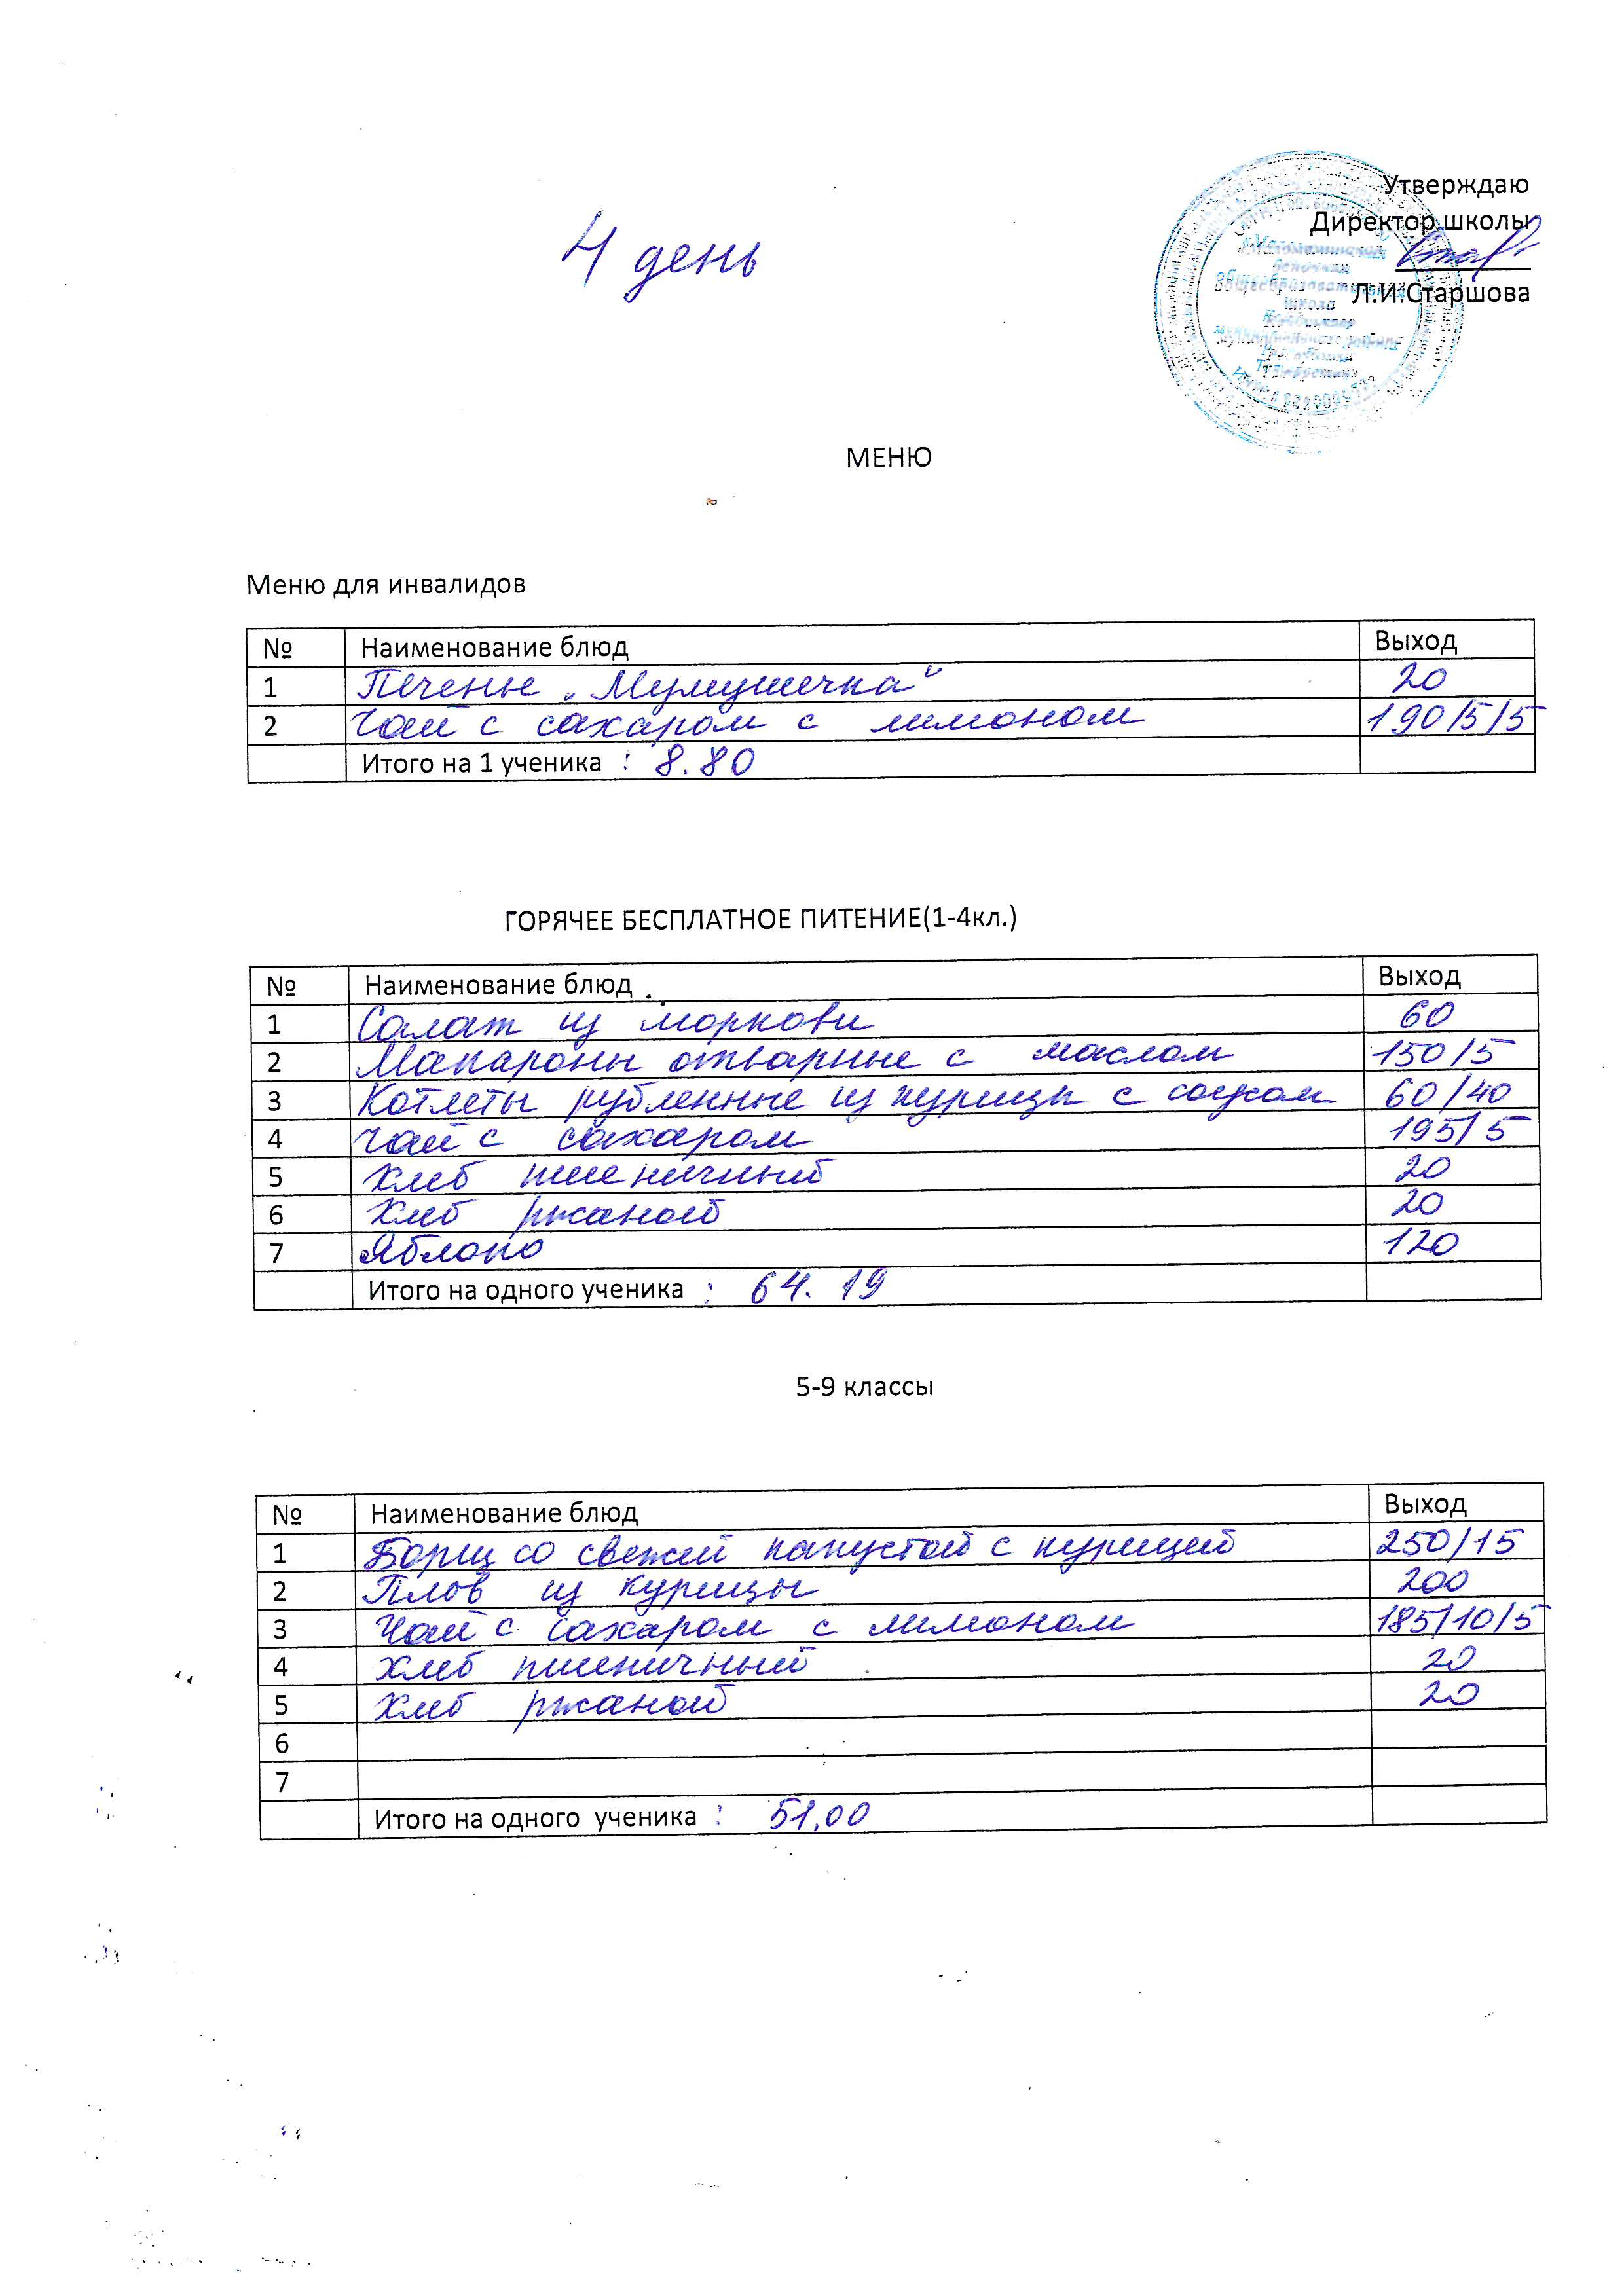 Утверждаю
Директор школы
4 день
Л.И.Старшова
общеобразовательная
школа
МЕНЮ
Меню для инвалидов
№ Наименование блюд Выход
1 Печенье 20
2 Чай с сахаром с лимоном 190/5/5
Итого на 1 ученика : 8.80
ГОРЯЧЕЕ БЕСПЛАТНОЕ ПИТЕНИЕ(1-4кл.)
№ Наименование блюд Выход
1 Салат из моркови 60
2 Макароны отварные с маслом 150/5
3 Котлеты рубленные из курицы с соусом 60/40
4 Чай с сахаром 195/5
5 Хлеб пшеничный 20
6 Хлеб ржаной 20
7 Яблоко 120
Итого на одного ученика : 64.19
5-9 классы
№ Наименование блюд Выход
1 Борщ со свежей капустой с курицей 250/15
2 Плов из курицы 200
3 Чай с сахаром с лимоном 185/10/5
4 Хлеб пшеничный 20
5 Хлеб ржаной 20
6
7
Итого на одного ученика : 51,00